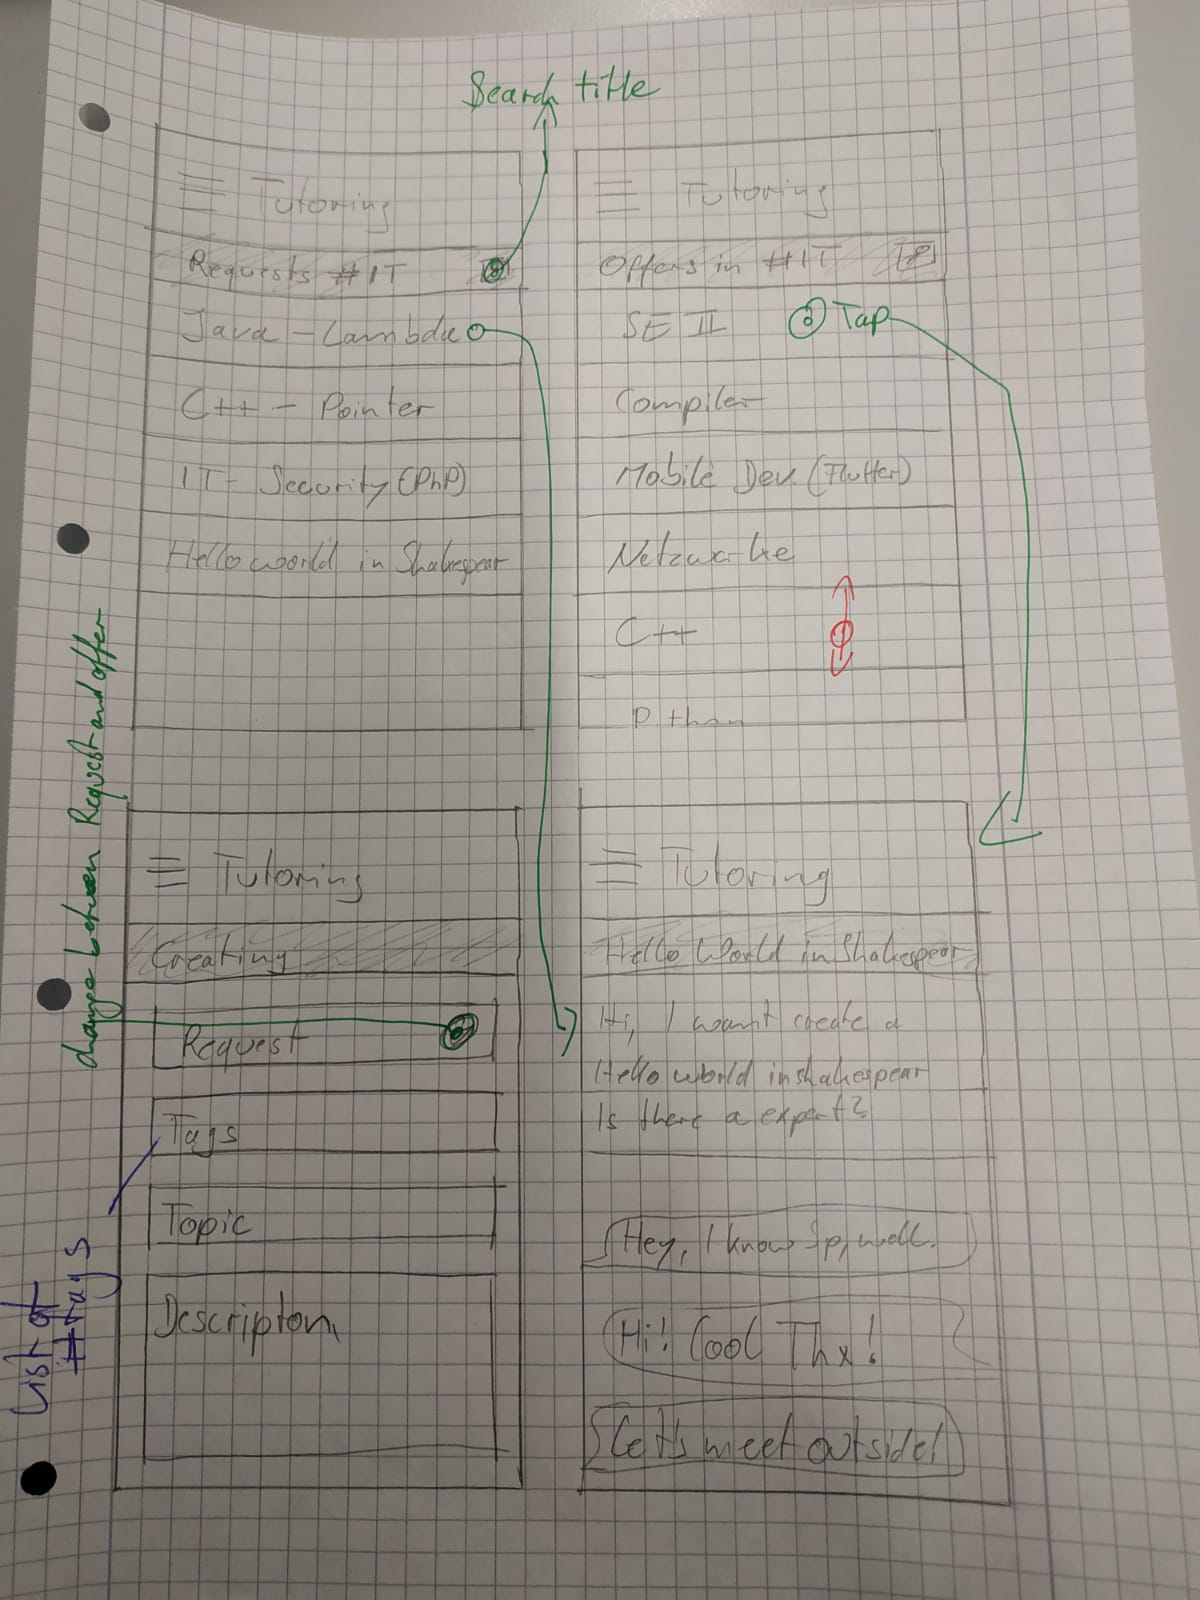 Search title
Tutoring
Requests #IT
Java - Lambda
C++ - Pointer
IT - Security (PhP)
Hello world in Shakespear
Tutoring
Offers in #IT
SE II
Tap
Compiler
Mobile Dev. (Flutter)
Netzwerke
C++
change between Request and offer
Tutoring
Creating
Request
Tags
Topic
Description
List of
#tags
Tutoring
Hello World in Shakespear
Hi, I want create a
Hello world in shakespear
Is there a expert?
Hey, I know Sp, well.
Hi! Cool Thx!
Let's meet outside!